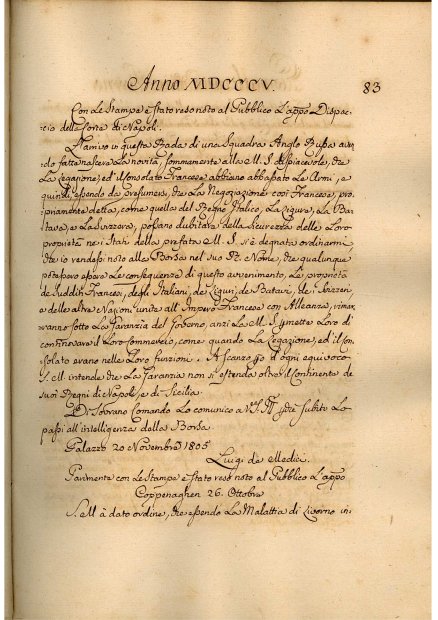 Anno MDCCCV.
83
Con Le Stampe è stato reso noto al Pubblico L'appo Dispac-
cio della Corte di Napoli.
L'arrivo in questa Rada di una Squadra Anglo Russa aven-
do fatta nascere La novità sommamente alla M. S. dispiacevole, che
La Legazione, ed il Consolato Francese abbiano abbassato Le Armi, e
quindi essendo da presumersi, che La Negoziazione così Francese, pro-
priamente detta, come quella del Regno Italico, La Ligura, La Ba-
tava, e La Svizzera, possano dubitare della sicurezza delle Loro
proprietà ne' Stati della prefata M. S. si è degnata ordinarmi
che io rendessi noto alla Borsa nel suo R. Nome, che qualunque
potessero essere Le conseguenze di questo avvenimento, Le proprietà
de' Sudditi Francesi, degli Italiani, de' Liguri, de' Batavi, de' Svizzeri
e delle altre Nazioni unite all'Impero Francese con Alleanza, rimar-
ranno sotto La Garanzia del Governo, anzi La M. S. permette Loro di
continovare il Loro Commercio, come quando La Legazione, ed il Con-
solato erano nelle Loro funzioni. A scanzo però d'ogni equivoco
S. M. intende che La Garanzia non si estenda oltre il Continente de'
suoi Regni di Napoli, e di Sicilia.
Di Sovrano Comando Lo comunico che subito Lo
passi all'intelligenza della Borsa.
Palazzo 20 Novembre 1805
Luigi de' Medici.
Parimente con Le Stampe è stato reso noto al Pubblico L'appo
Coppenaghen 26. Ottobre
S. M. à dato ordine, che essendo La Malattia di Livorno in-